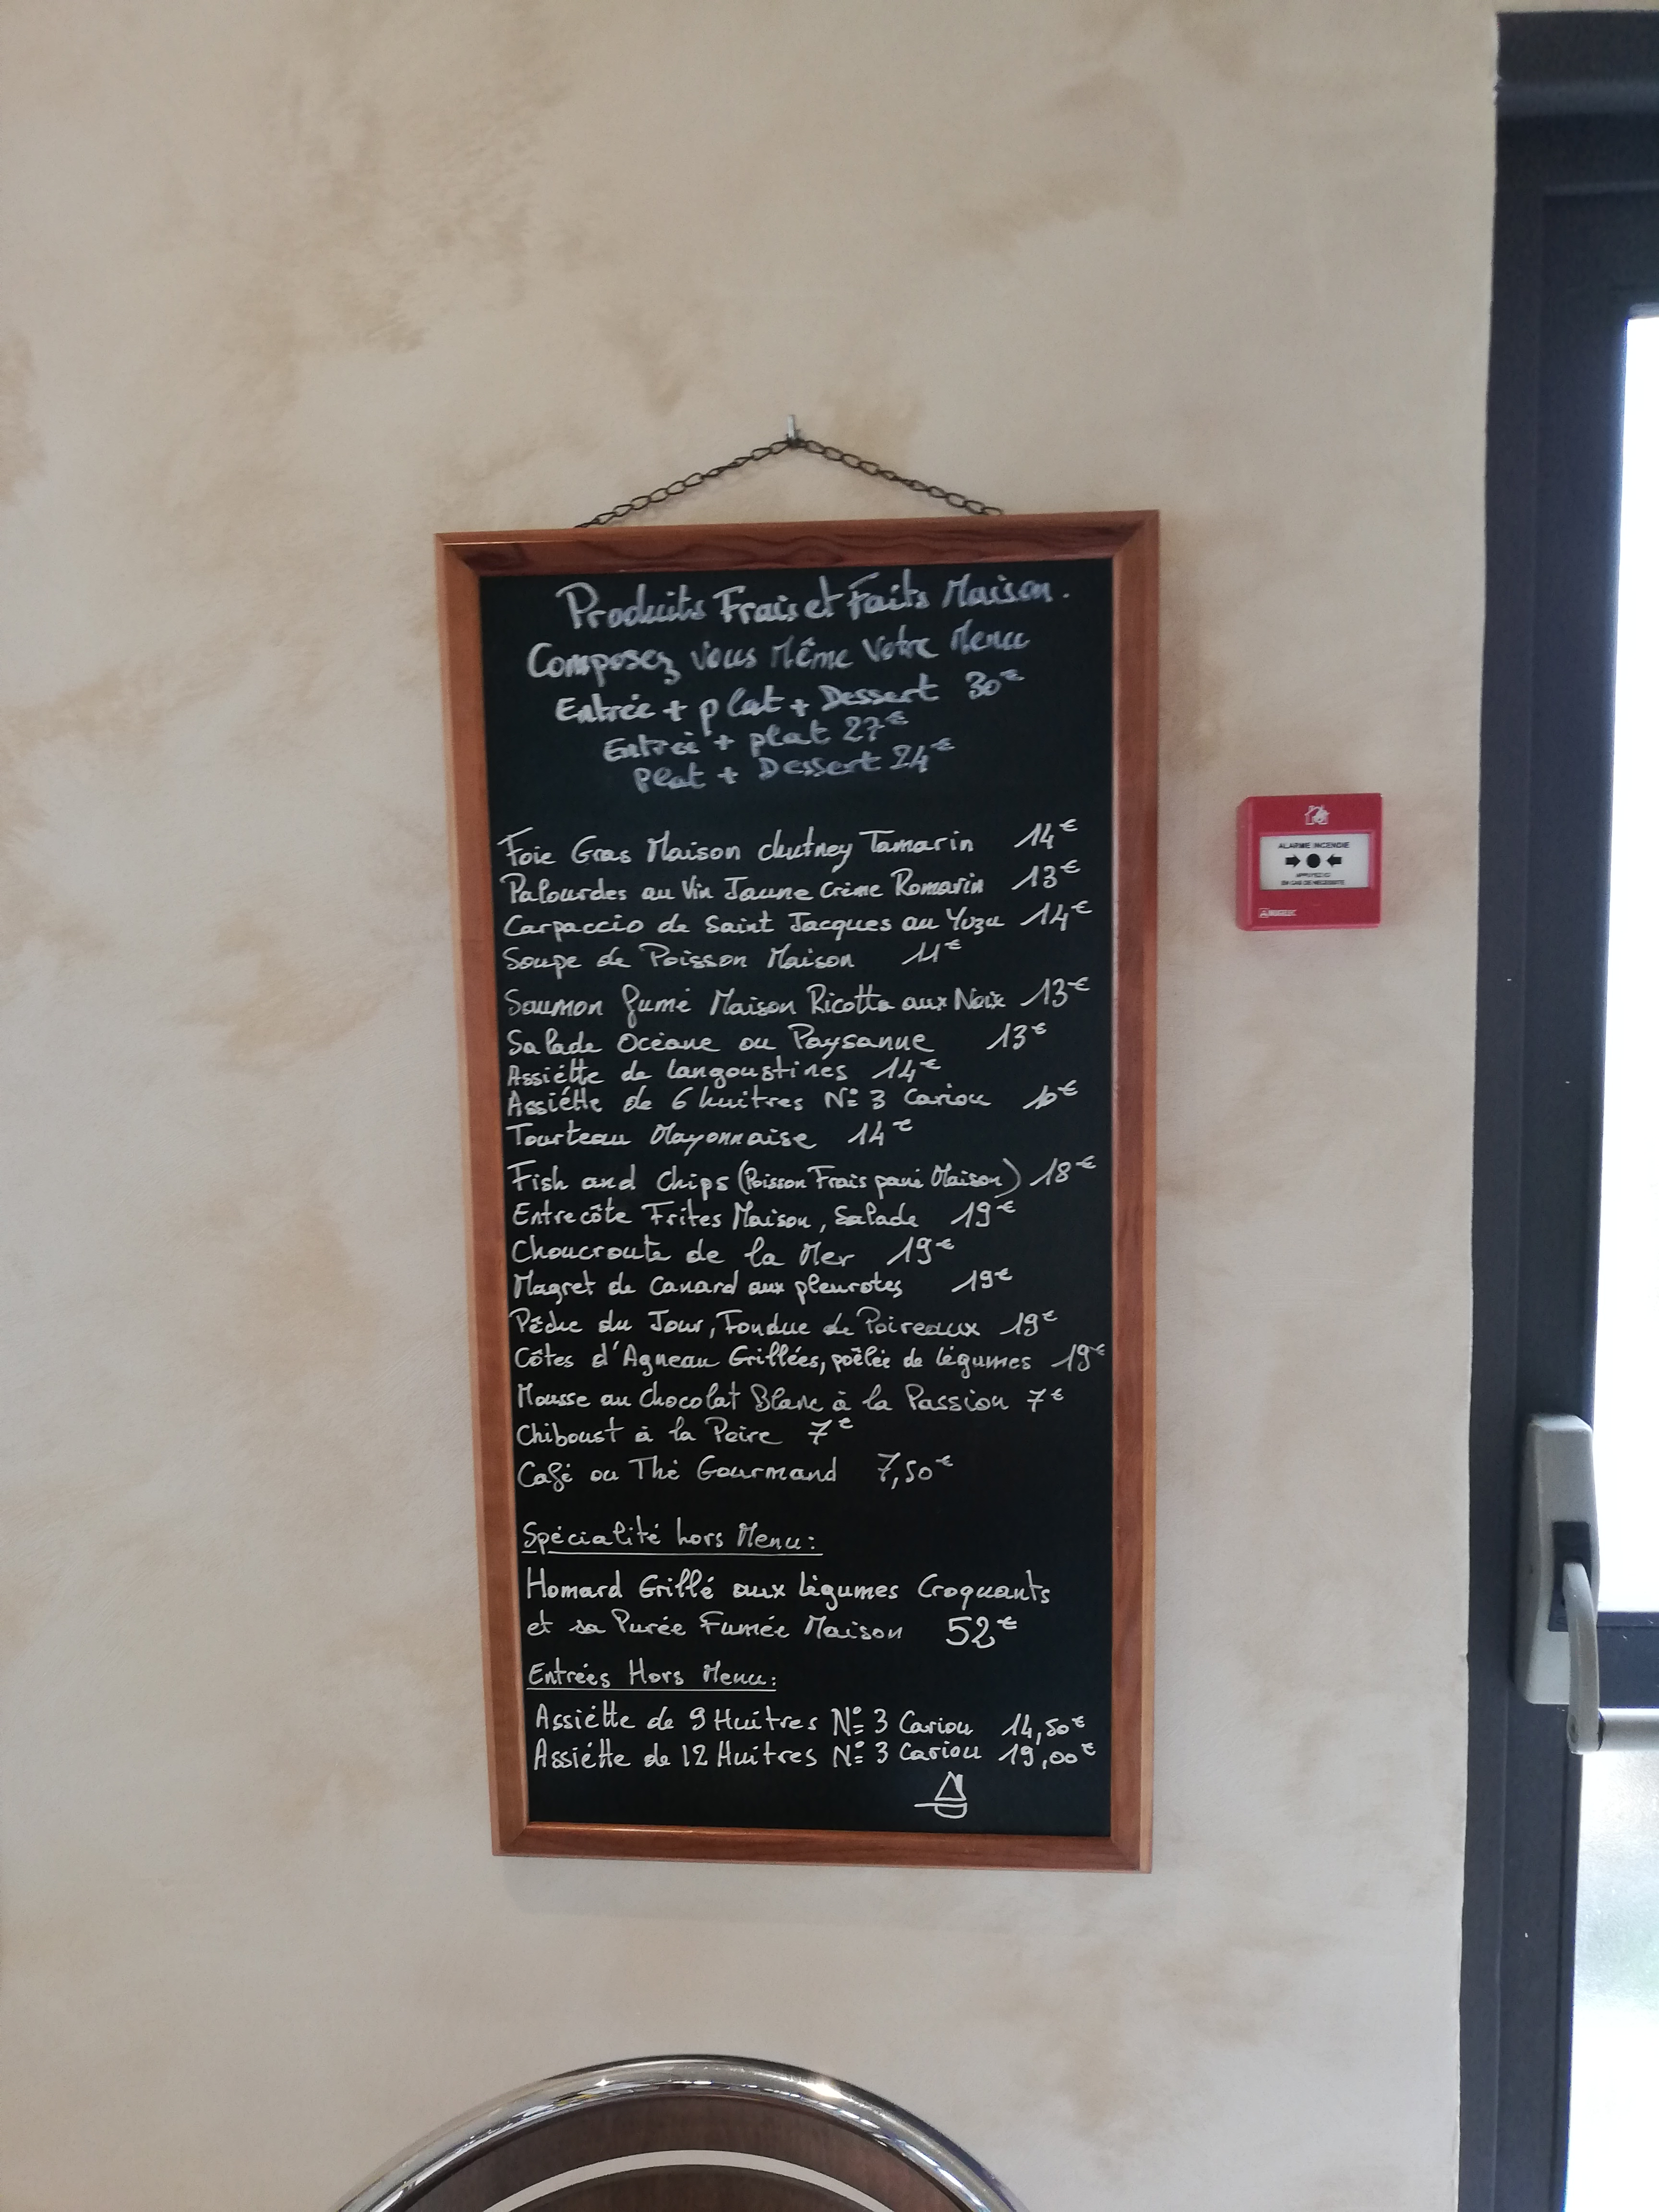 Produits Frais et Faits Maison.
Composez vous Même Votre Menu
Entrée + plat + Dessert 30€
Entrée + plat 27€
plat + Dessert 24€
Foie Gras Maison chutney Tamarin 14€
Palourdes au Vin Jaune Crème Romarin 13€
Carpaccio de Saint Jacques au Yuzu 14€
Soupe de Poisson Maison 11€
Saumon fumé Maison Ricotta aux Noix 13€
Salade Océane ou Paysanne 13€
Assiétte de langoustines 14€
Assiétte de 6 huitres N° 3 Cariou 10€
Tourteau Mayonnaise 14€
Fish and Chips (Poisson Frais pané Maison) 18€
Entrecôte Frites Maison, Salade 19€
Choucroute de la Mer 19€
Magret de Canard aux pleurotes 19€
Pêche du Jour, Fondue de Poireaux 19€
Côtes d'Agneau Grillées, poêlée de légumes 19€
Mousse au Chocolat Blanc à la Passion 7€
Chiboust à la Poire 7€
Café ou Thé Gourmand 7,50€
Spécialité hors Menu:
Homard Grillé aux Légumes Croquants
et sa Purée Fumée Maison 52€
Entrées Hors Menu:
Assiétte de 9 Huitres N° 3 Cariou 14,50€
Assiétte de 12 Huitres N° 3 Cariou 19,00€
ALARME INCENDIE
APPUYEZ ICI
EN CAS DE NÉCESSITÉ
NUGELEC